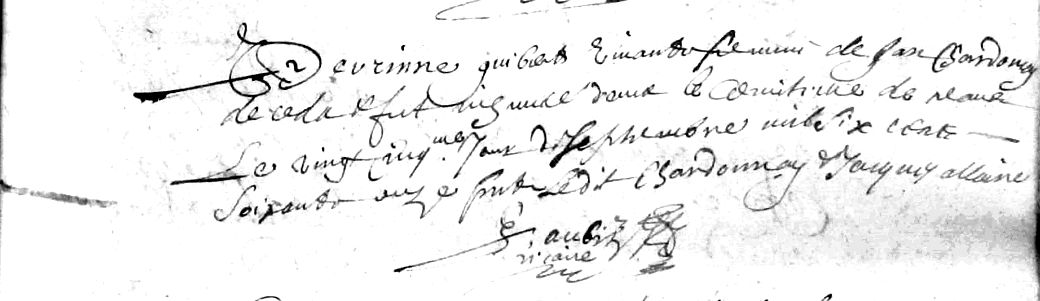 Perrinne quibert vivante femme de Jan Chardonnay
deceda & fut inhumée dans le cemitiere de
Le vingt cinqme Jour de Septembre mil Six cents
Soixante onze puts Ledit Chardonnay & Jacques allaire
aubi
vicaire